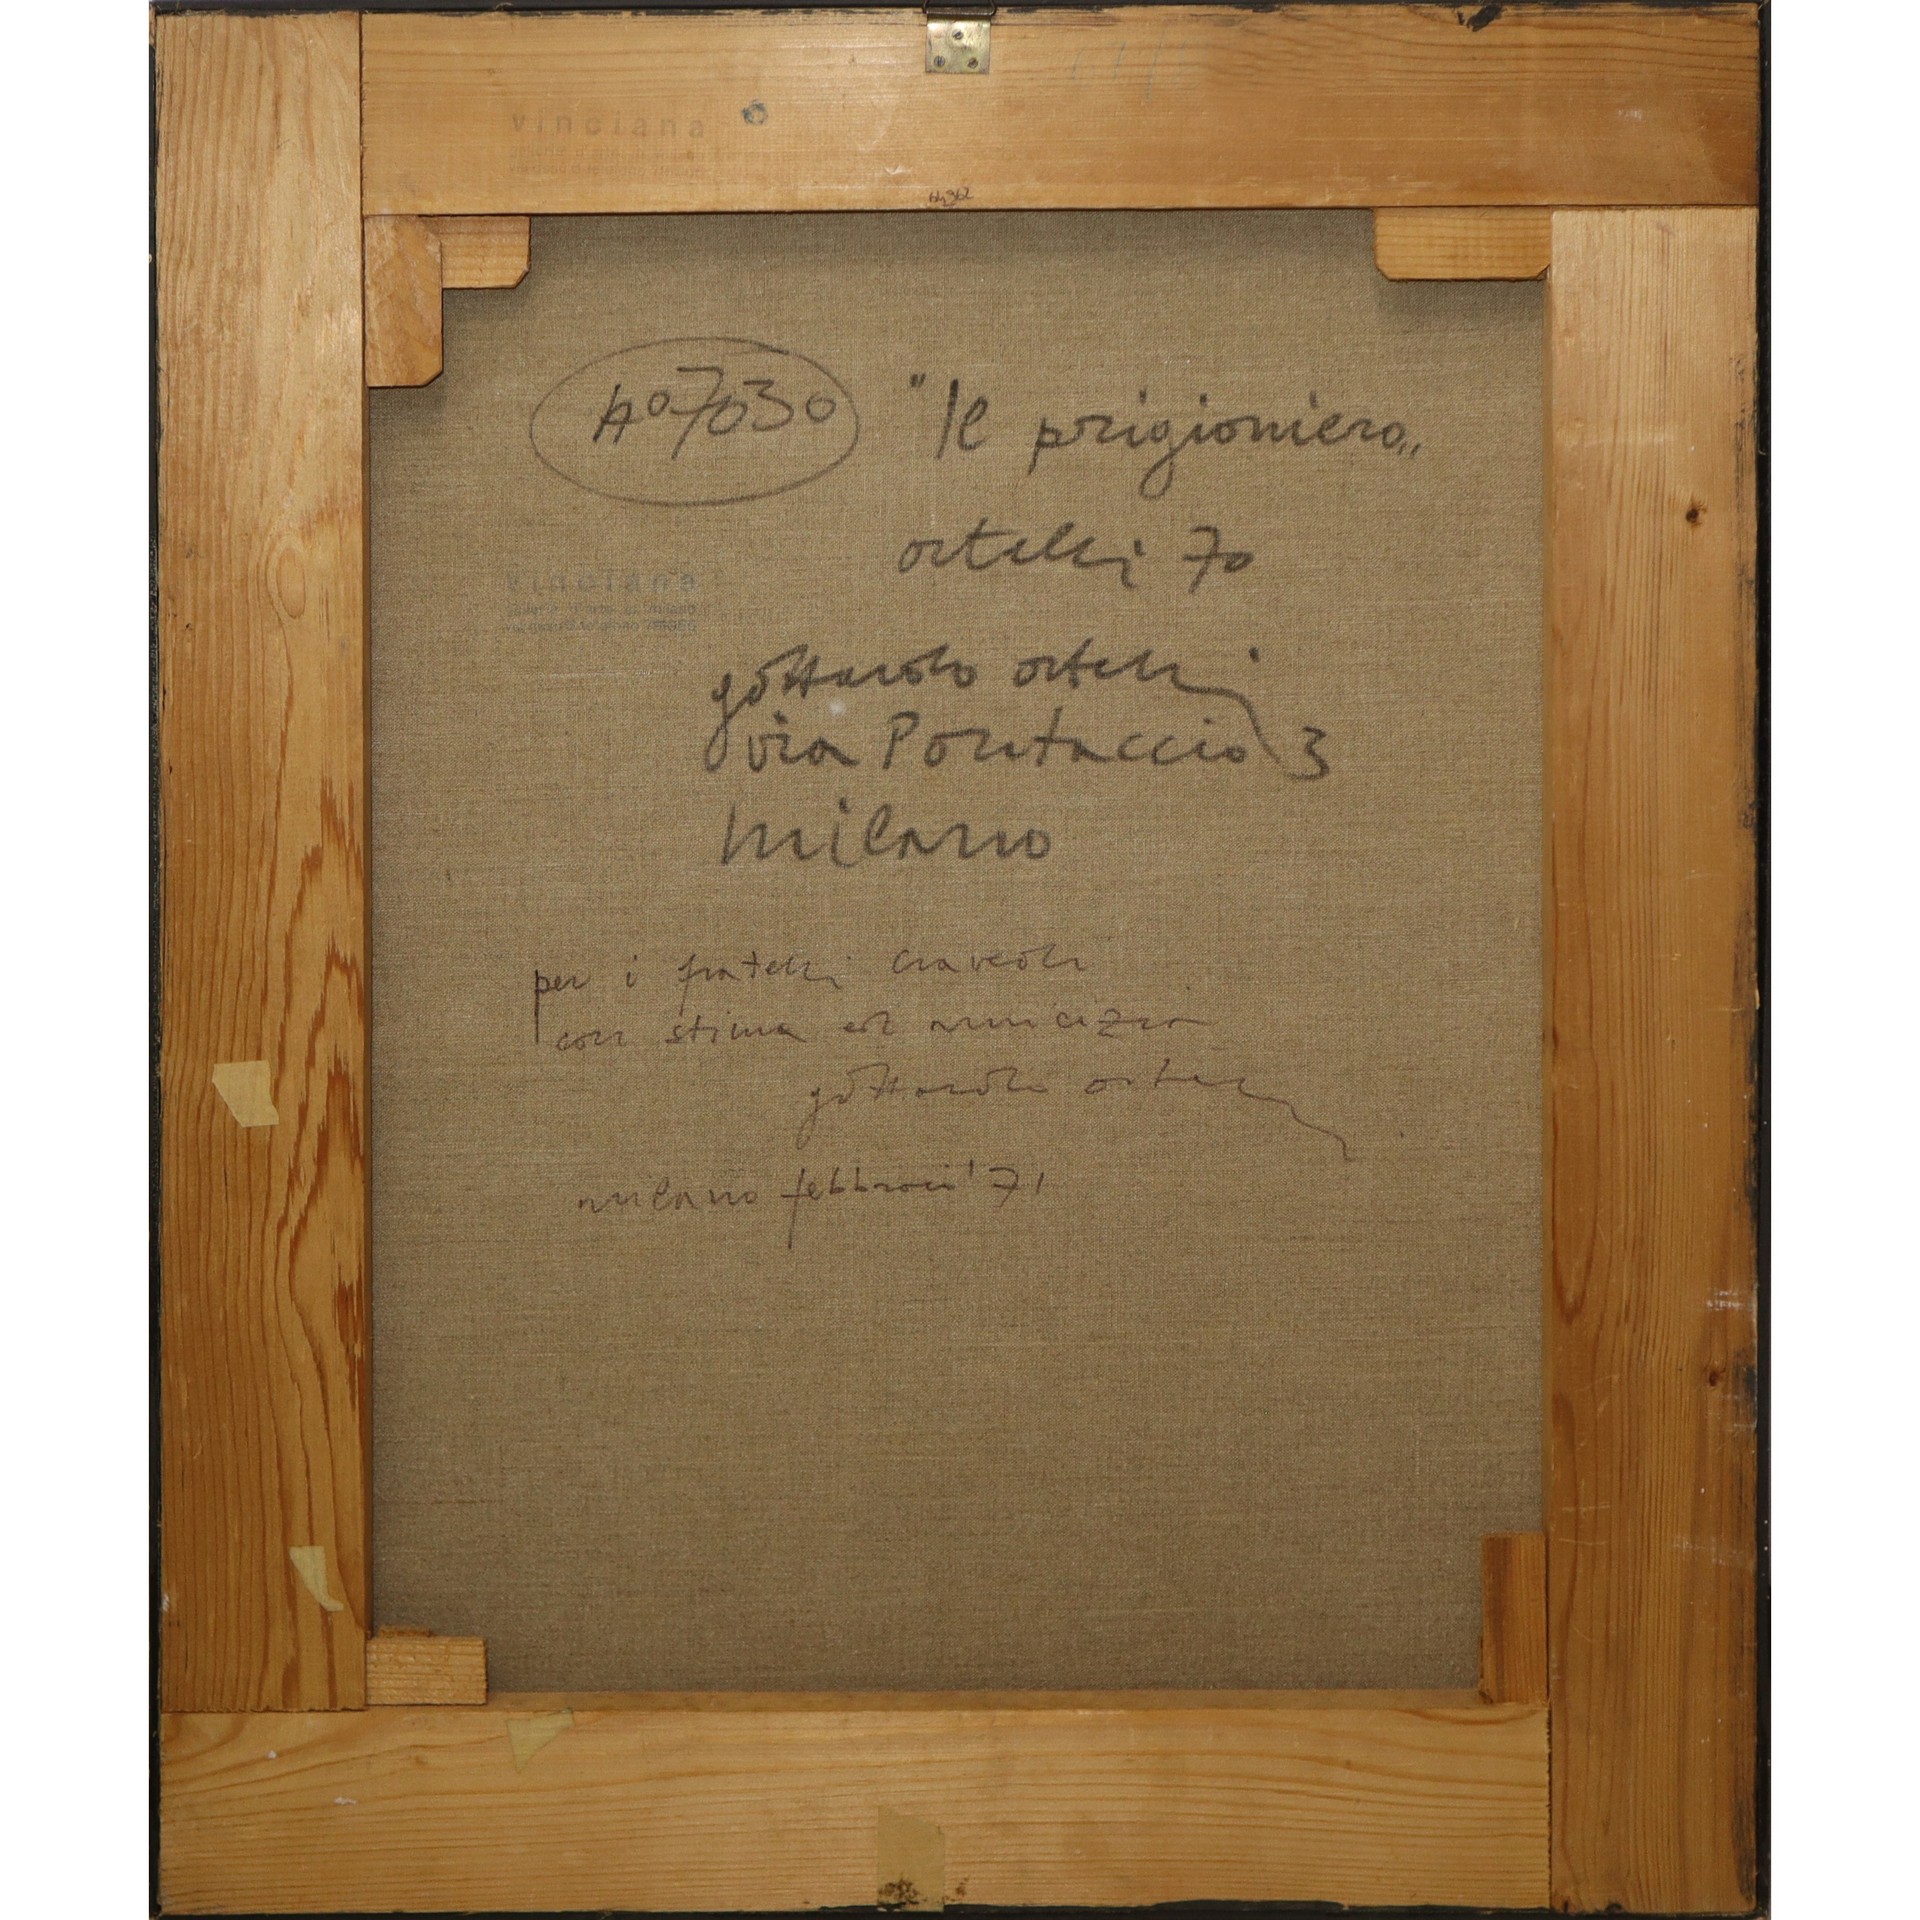 vinciana
64362
A°7030 "Il prigioniero"
ortelli 70
vinciana
gottardo ortelli
via Pontaccio 3
milano
per i fratelli
con stima ed amicizia
gottardo ortelli
milano febbraio '71